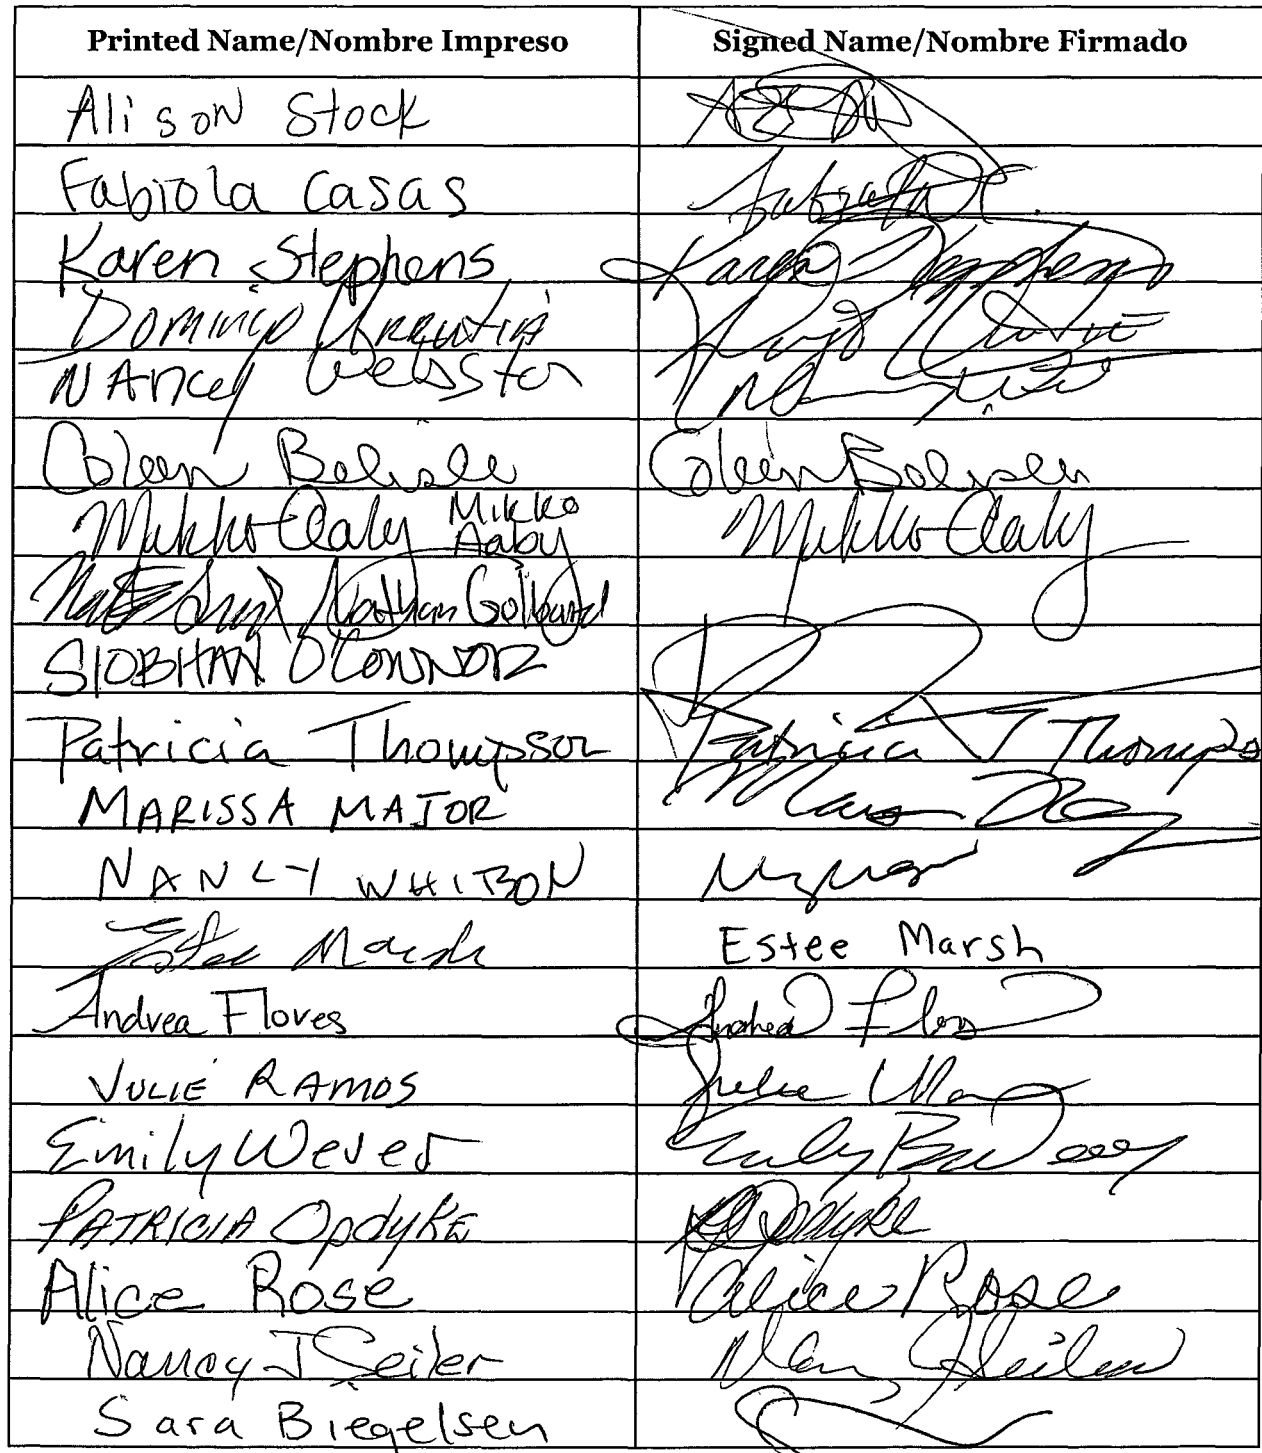 Printed Name/Nombre Impreso Signed Name/Nombre Firmado
Alison Stock
Fabiola Casas
Karen Stephens Karen Stephens
Domingo Urrutia
Nancy Webster
Coleen Belisle Coleen Belisle
Mikko Aaby
Nathan
SIOBHAN O'CONNOR
Patricia Thompson Patricia Thompso
MARISSA MAJOR
NANCY
Estee Marsh Estee Marsh
Andrea Flores Andrea
JULIE RAMOS Julie
Emily Wever Emily
PATRICIA OpdyKE Opdyke
Alice Rose Alice Rose
Nancy J Seiler Seiler
Sara Biegelsen